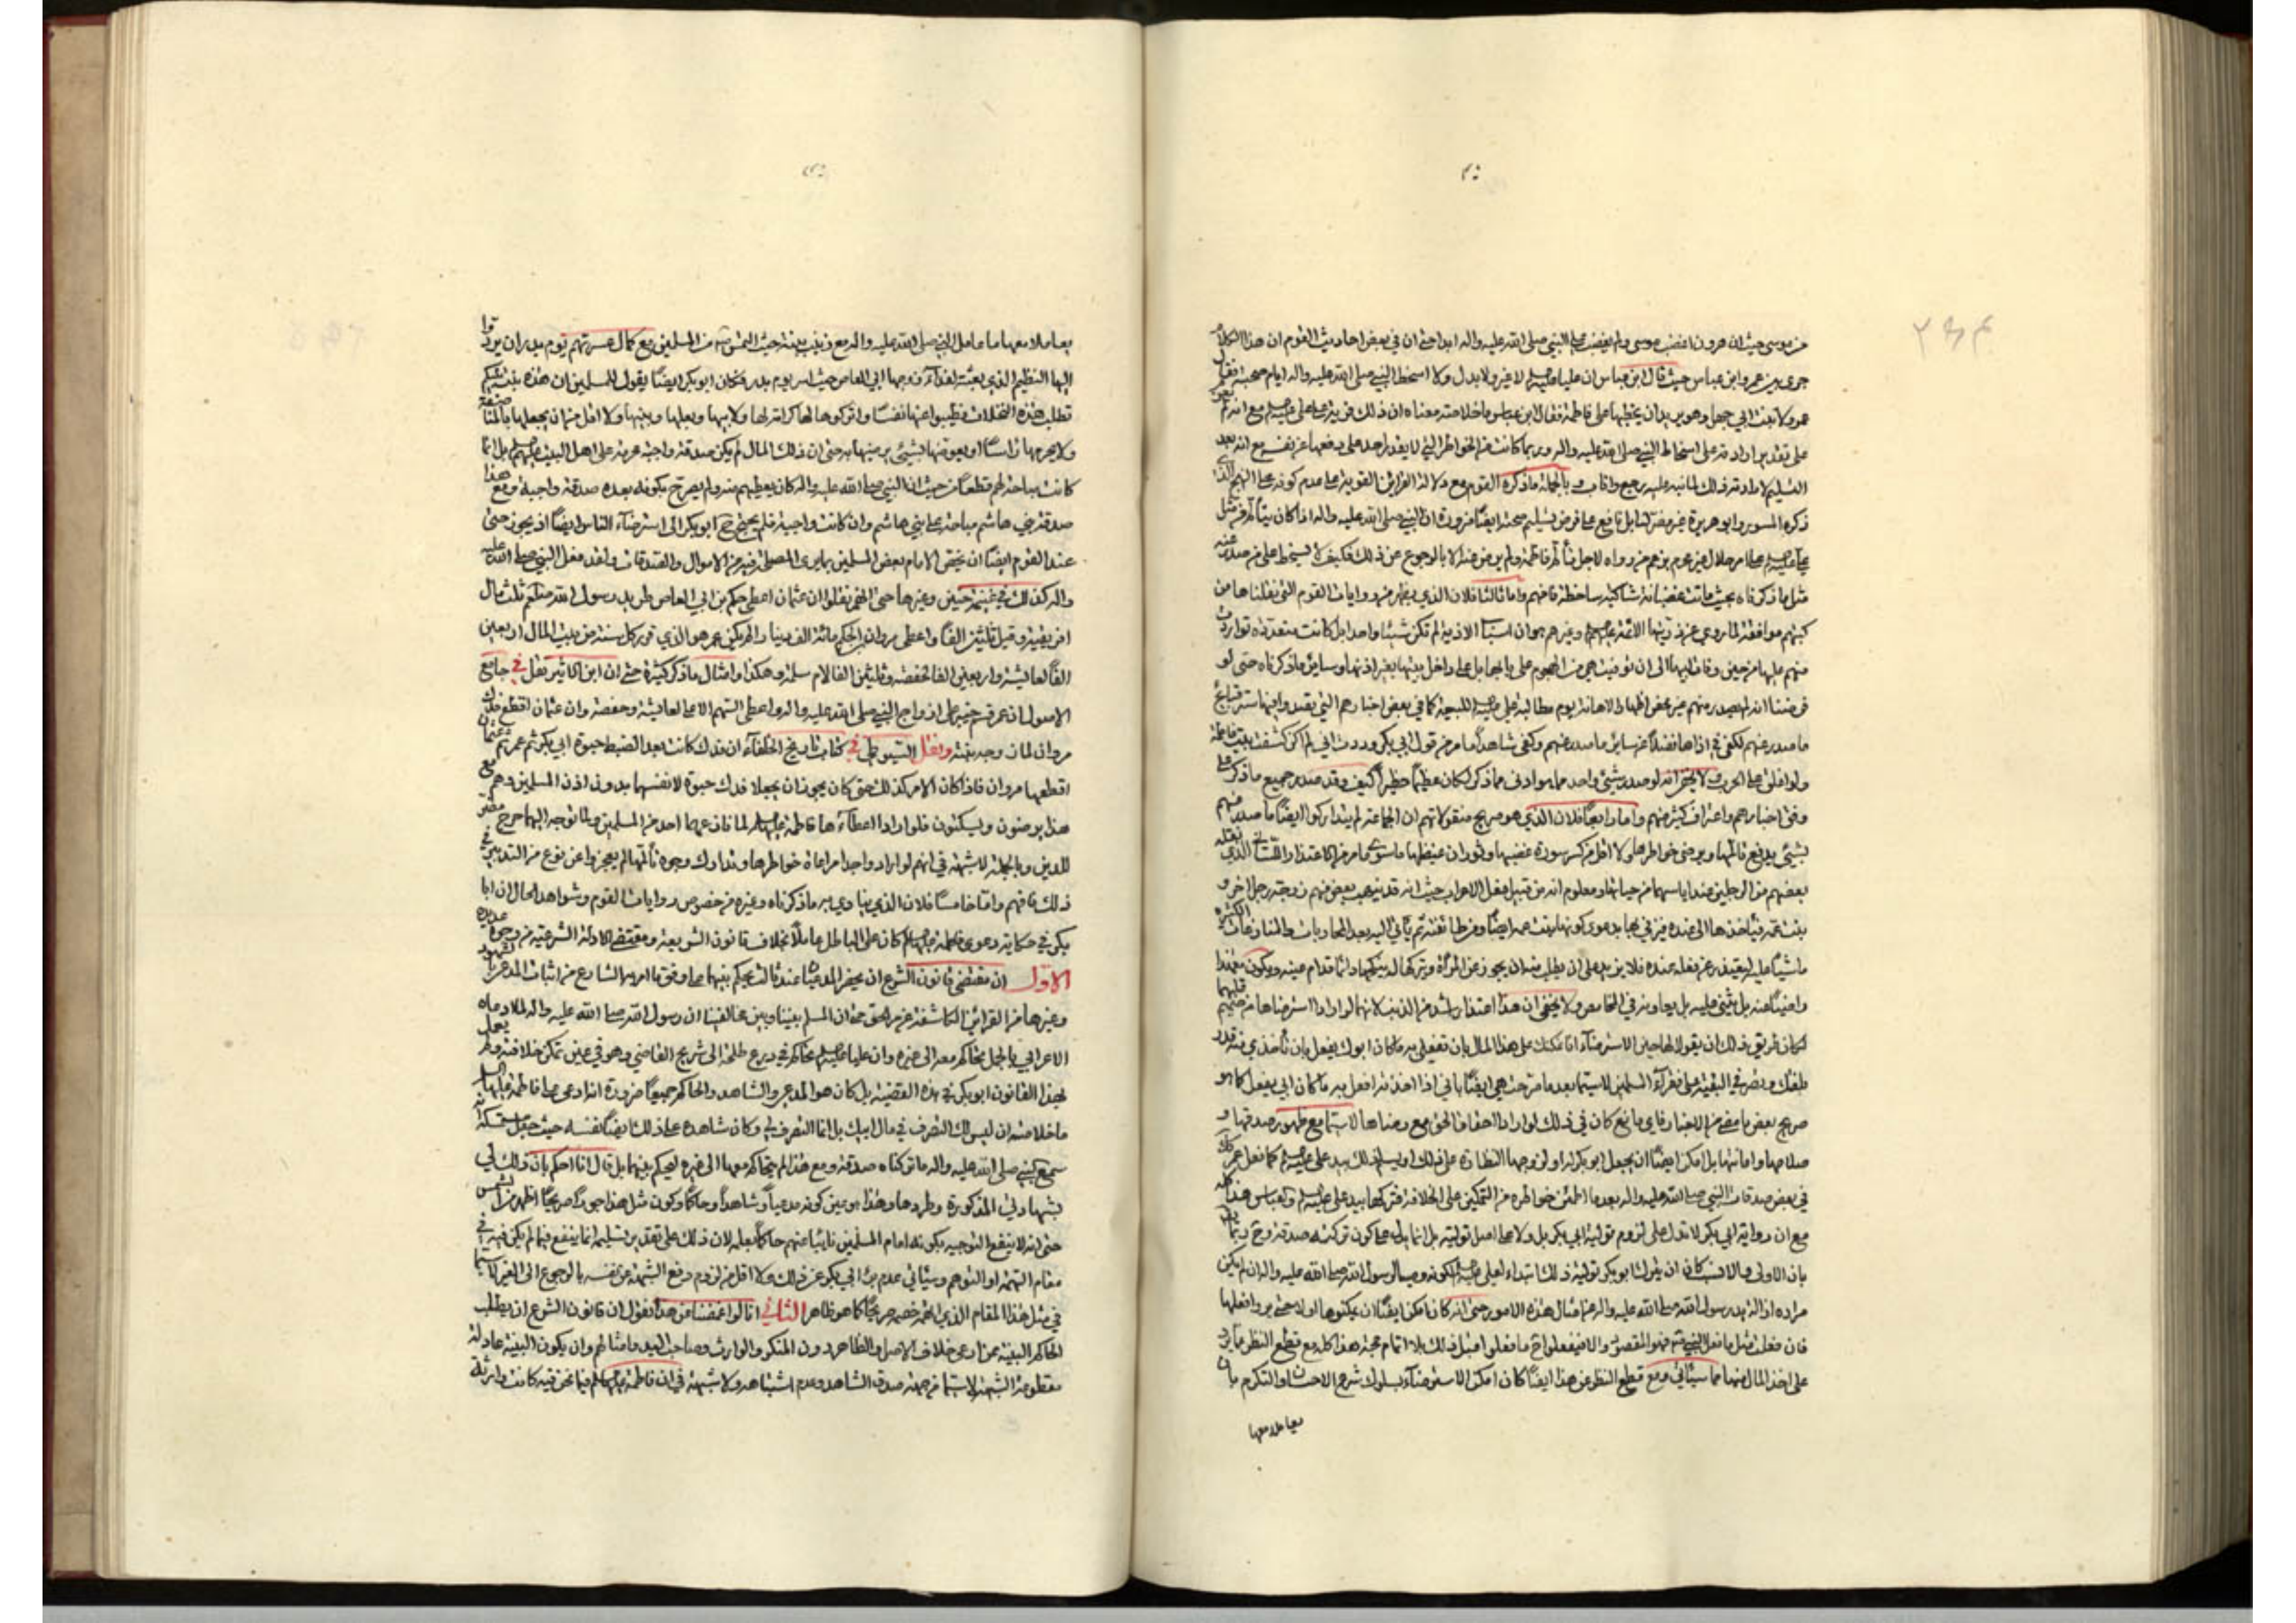 من موسى حيث ان هرون اغضب موسى ولم يغضب علي النبي صلى الله عليه واله ابدا حتى ان في بعض احاديث القوم ان هذا الكلام
جرى بين عمر وابن عباس حيث قال ابن عباس ان عليا عليه السلم لا غير ولا بدل ولا اسخط النبي صلى الله عليه واله ايام صحبته فقال
عمر ولا بنت ابي جهل وهو يريد ان يخطبها على فاطمة فقال ابن عباس ما خلاصته معناه ان ذلك مع انه
على تقدير ارادته على اسخاط النبي صلى الله عليه واله وربما كانت من الخواطر التي لا يقدر احد على دفعها عن نفسه مع انه بعد
التسليم لارادته ذلك لما نبه عليه رجع واناب وبالجملة ما ذكره القوم مع دلالة القرائن القوية على عدم كونه على النهج الذي
ذكره المسور وابو هريرة غير مضر لنا بل نافع على فرض تسليم صحته ايضا ضرورة ان النبي صلى الله عليه واله اذا كان يتألم من مثل
علي عليه السلم على امر حلال غير محرم بزعم من رواه لاجل تألم فاطمة ولم يرض منه الا بالرجوع عن ذلك فكيف لا يسخط على من صدر عنه
مثل ما ذكرناه بحيث ماتت غضبانة شاكية ساخطة عنهم واما ثالثا فلان الذي يظهر من روايات القوم التي نقلناها من
كتبهم موافقة لما روي عن ذريتها الائمة عليهم السلم وغيرهم هو ان اسباب الاذية لم تكن شيئا واحدا بل كانت متعددة تواردت
منهم عليها من حين وفاة ابيها الى ان توفيت هي من الهجوم على بابها بل على داخل بيتها بغير اذنها وسائر ما ذكرناه حتى لو
فرضنا انه لم يصدر منهم غير محض اظهار الاهانة يوم مطالبة علي عليه السلم للبيعة كما في بعض اخبارهم التي تقدم
ما صدر عنهم لكفى في اذاها فضلا عن سائر ما صدر منهم وكفى شاهدا ما مر من قول ابي بكر وددت اني لم اكن كشفت بيت فاطمة
ولو اغلق على الحرب ولا يخفى انه لو صدر شيء واحد مما هو ادنى مما ذكر لكان عظيما خطيرا كيف وقد صدر جميع ما ذكر على
وفق اخبارهم واعتراف كثير منهم واما رابعا فلان الذي هو صريح منقولاتهم ان الجماعة لم يتداركوا ايضا ما صدر منهم
بشيء يدفع تألمها ويرضي خواطرها ولا اقل من كسر سورة غضبها وثوران غيظها ما سوى ما مر من الاعتذار اللساني الذي نقله
بعضهم من الرجلين عند اياسهما من حياتها ومعلوم انه من قبيل فعل الاعراب حيث انه قد ينهب بعض منهم زوجة رجل اخر و
بنت عمه فيأخذها الى عنده
ماشيا عليه ليعتذر عن فعله عنده فلا يزيد على ان يطلب منه ان يجوز عن المرأة ويتركها له
راضيا عنه بل يثني عليه بل يعاونه في المخاصم ولا يخفى ان هذا اعتذار اشد من الذنب لانهما لو ارادا استرضاها من صميم قلبهما
لكان طريق ذلك ان يقولا لها حين الاسترضاء انا نمكنك على هذا المال بان تفعلي به ما كان ابوك يفعل بان تأخذي منه قدر
وتصرفي البقية على فقراء المسلمين لا سيما بعد ما صرحت هي ايضا باني اذا اخذته افعل به ما كان ابي يفعل كما هو
صريح بعض ما مضى من الاخبار فاي مانع كان في ذلك لو ارادا احقاق الحق مع رضاها لا سيما مع ظهور صدقها و
صلاحها وامانتها بل امكن ايضا ان يجعل ابو بكر له او لزوجها النظارة على فدك او يسلم ذلك بيد علي عليه السلم كما فعل عمر ذلك
في بعض صدقات النبي صلى الله عليه واله بعد ما اطمئن خواطره من التمكين على الخلافة فتركها بيد علي عليه السلم والعباس هذا كله
مع ان رواية ابي بكر لا تدل على لزوم تولية ابي بكر بل ولا على اصل توليته بل انما يدل على كون تركته صدقة
بان الاولى والانسب كان ان يترك ابو بكر تولية ذلك ابتداء لعلي عليه السلم لكونه وصي رسول الله صلى الله عليه واله ان لم يكن
مراده ازالة يد رسول الله صلى الله عليه واله عن امثال هذه الامور حتى انه كان يمكن ايضا ان يمكنوها اولا حتى يروا فعلها
فان فعلت مثل ما فعل النبي صم فهو المقصود والا فيفعلوا ح ما فعلوا قبل ذلك بلا اتمام حجة هذا كله مع قطع النظر عما يرد
على اخذ المال منها مما سيأتي ومع قطع النظر عن هذا ايضا كان امكن الاسترضاء بسلوك شرع الاحسان والتكرم بان
يعاملا معها
يعاملا معها ما عامل النبي صلى الله عليه واله مع زينب بنته حيث التمس من المسلمين مع كمال عسرتهم يوم بدر ان يردوا
اليها النظيم الذي بعثته لفداء زوجها ابي العاص حيث اسر يوم بدر فكان ابو بكر ايضا يقول للمسلمين ان هذه بنت نبيكم
تطلب هذه النخلات فطيبوا عنها نفسا واتركوها لها كرامة لها ولابيها وبعلها وبنيها ولا اقل من ان يجعلها بالمناصفة
ولا يحرمها رأسا او يعوضها بشيء يرضيها به حتى ان ذلك المال لم يكن صدقة واجبة محرمة على اهل البيت عليهم السلم بل انما
كانت مباحة لهم قطعا من حيث ان النبي صلى الله عليه واله كان يعطيهم منه ولم يصرح بكونه بعده صدقة واجبة ومع هذا
صدقة بني هاشم مباحة على بني هاشم وان كانت واجبة فلم يحتج ح ابو بكر الى استرضاء الناس ايضا اذ يجوز حتى
عند القوم ايضا ان يخص الامام بعض المسلمين بما يرى المصلحة فيه من الاموال والصدقات ولقد فعل النبي صلى الله عليه
واله كذلك في غنيمة حنين وغيرها حتى انهم نقلوا ان عثمان اعطى حكم بن ابي العاص طريد رسول الله صلعم ثلث مال
افريقية وقيل ثلثين الفا واعطى مروان بن الحكم مائة الف دينار الم يكن عمر هو الذي قرر كل سنة من بيت المال اربعين
الفا لعايشة واربعين الفا لحفصة وثلثين الفا لام سلمة وهكذا وامثال ما ذكر كثيرة حتى ان ابن الاثير نقل في جامع
الاصول ان عمر قسم خيبر على ازواج النبي صلى الله عليه واله واعطى السهم الاعلى لعايشة وحفصة وان عثمان اقطع فدك
مروان لما زوجه بنته ونقل السيوطي في كتاب تاريخ الخلفاء ان فدك كانت بعد الضبط حبوة ابي بكر ثم عمر ثم عثمان
اقطعها مروان فاذا كان الامر كذلك حتى كان يجوز ان يجعلا فدك حبوة لانفسهما بدون اذن المسلمين وهم مع
هذا يرضون ويسكتون فلو ارادا اعطاءها فاطمة عليها السلم لما نازعهما احد من المسلمين ولما توجه اليهما حرج مضر
للدين وبالجملة لا شبهة في انهم لو اراد واحدا مراعاة خواطرها وتدارك وجوه تألمها لم يعجزوا عن نوع من التدبير في
ذلك فافهم واما خامسا فلان الذي ينادي به ما ذكرناه وغيره من خصوص روايات القوم وشواهد الحال ان ابا
بكر في حكاية دعوى فاطمة عليها السلم كان على الباطل عاملا بخلاف قانون الشريعة ومقتضى الادلة الشرعية من وجوه عديدة
الاول ان مقتضى قانون الشرع ان يحضر المدعيان عند ثالث يحكم بينهما على وفق ما امر به الشارع من اثبات المدعى بالشهود
وغيرها من القرائن الكاشفة عن مر الحق حتى ان المسلم بيننا وبين مخالفينا ان رسول الله صلى الله عليه واله لما ادعاه
الاعرابي بالجمل تحاكم معه الى غيره وان عليا عليه السلم تحاكم في درع طلحة الى شريح القاضي وهو في عين تمكن خلافته ولم يعمل
بهذا القانون ابو بكر في هذه القضية بل كان هو المدعي والشاهد والحاكم جميعا ضرورة انه ادعى على فاطمة عليها السلم
ما خلاصته ان ليس لك التصرف في مال ابيك بل انما التصرف لي وكان شاهده على ذلك ايضا نفسه حيث
سمع النبي صلى الله عليه واله ما تركناه صدقة ومع هذا لم يتحاكم معها الى غيره ليحكم بينهما بل قال انا احكم بان ذلك لي
بشهادتي المذكورة وطردها وهذا هو عين كونه مدعيا وشاهدا وحاكما وكون مثل هذا جورا صريحا اظهر من الشمس
حتى انه لا ينفع التوجيه بكونه امام المسلمين نائبا عنهم حاكما بعلمه لان ذلك على تقدير تسليمه انما ينفع فيما لم يكن فيه في
مقام التهمة او التوهم وسيأتي عدم براءة ابي بكر عن ذلك ولا اقل من لزوم دفع الشبهة عن نفسه بالرجوع الى الغير لا سيما
في مثل هذا المقام الذي اتهمه خصمه صريحا كما هو ظاهر الثاني انا لو اغمضنا عن هذا نقول ان قانون الشرع ان يطلب
الحاكم البينة ممن ادعى خلاف الاصل والظاهر دون المنكر والوارث وصاحب اليد وامثالهم وان يكون البينة عادلة
مقطوعة الشبهة لا سيما من جهة صدق الشاهد وعدم اشتباهه ولا شبهة في ان فاطمة عليها السلم فيما نحن فيه كانت وارثة